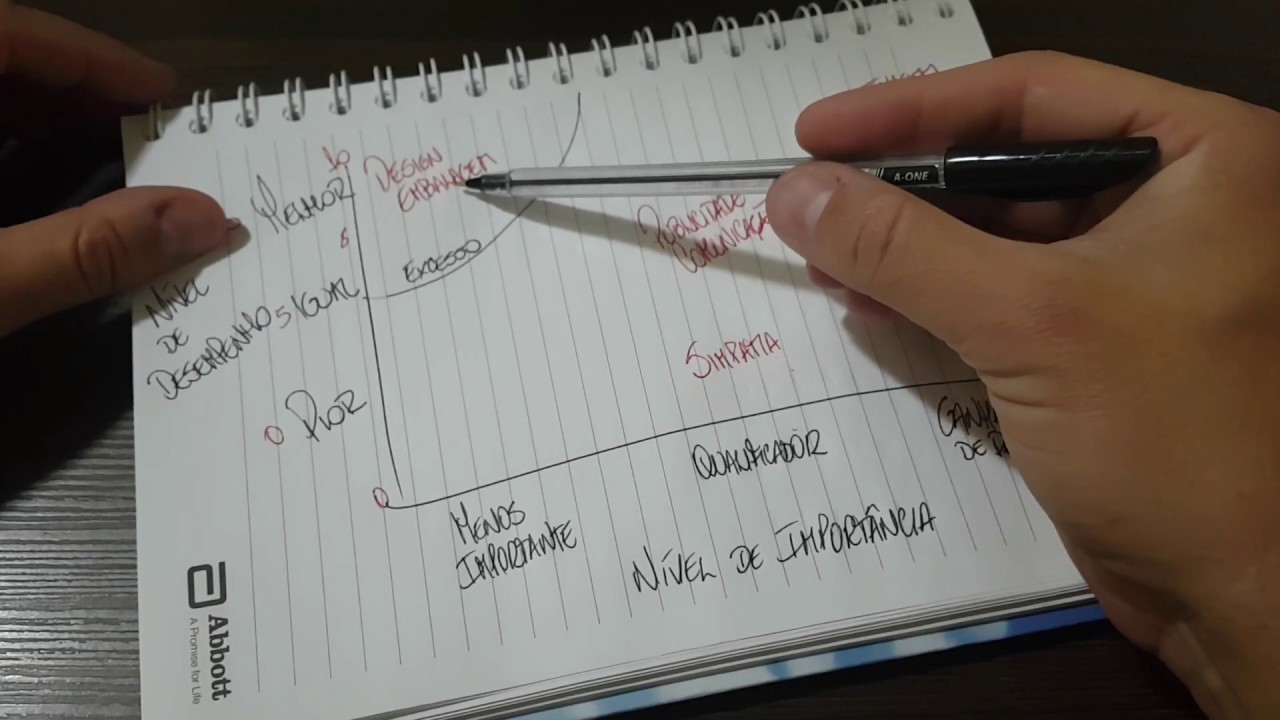 10
DESIGN
EMBALAGEM
MELHOR
8
EXCESSO
PUBLICIDADE
COMUNICAÇÃ
NÍVEL
DE
DESEMPENHO
5 IGUAL
SIMPATIA
0 PIOR
0
MENOS
IMPORTANTE
QUALIFICADOR
GANH
DE P
NÍVEL DE IMPORTÂNCIA
Abbott
A Promise for Life
A-ONE